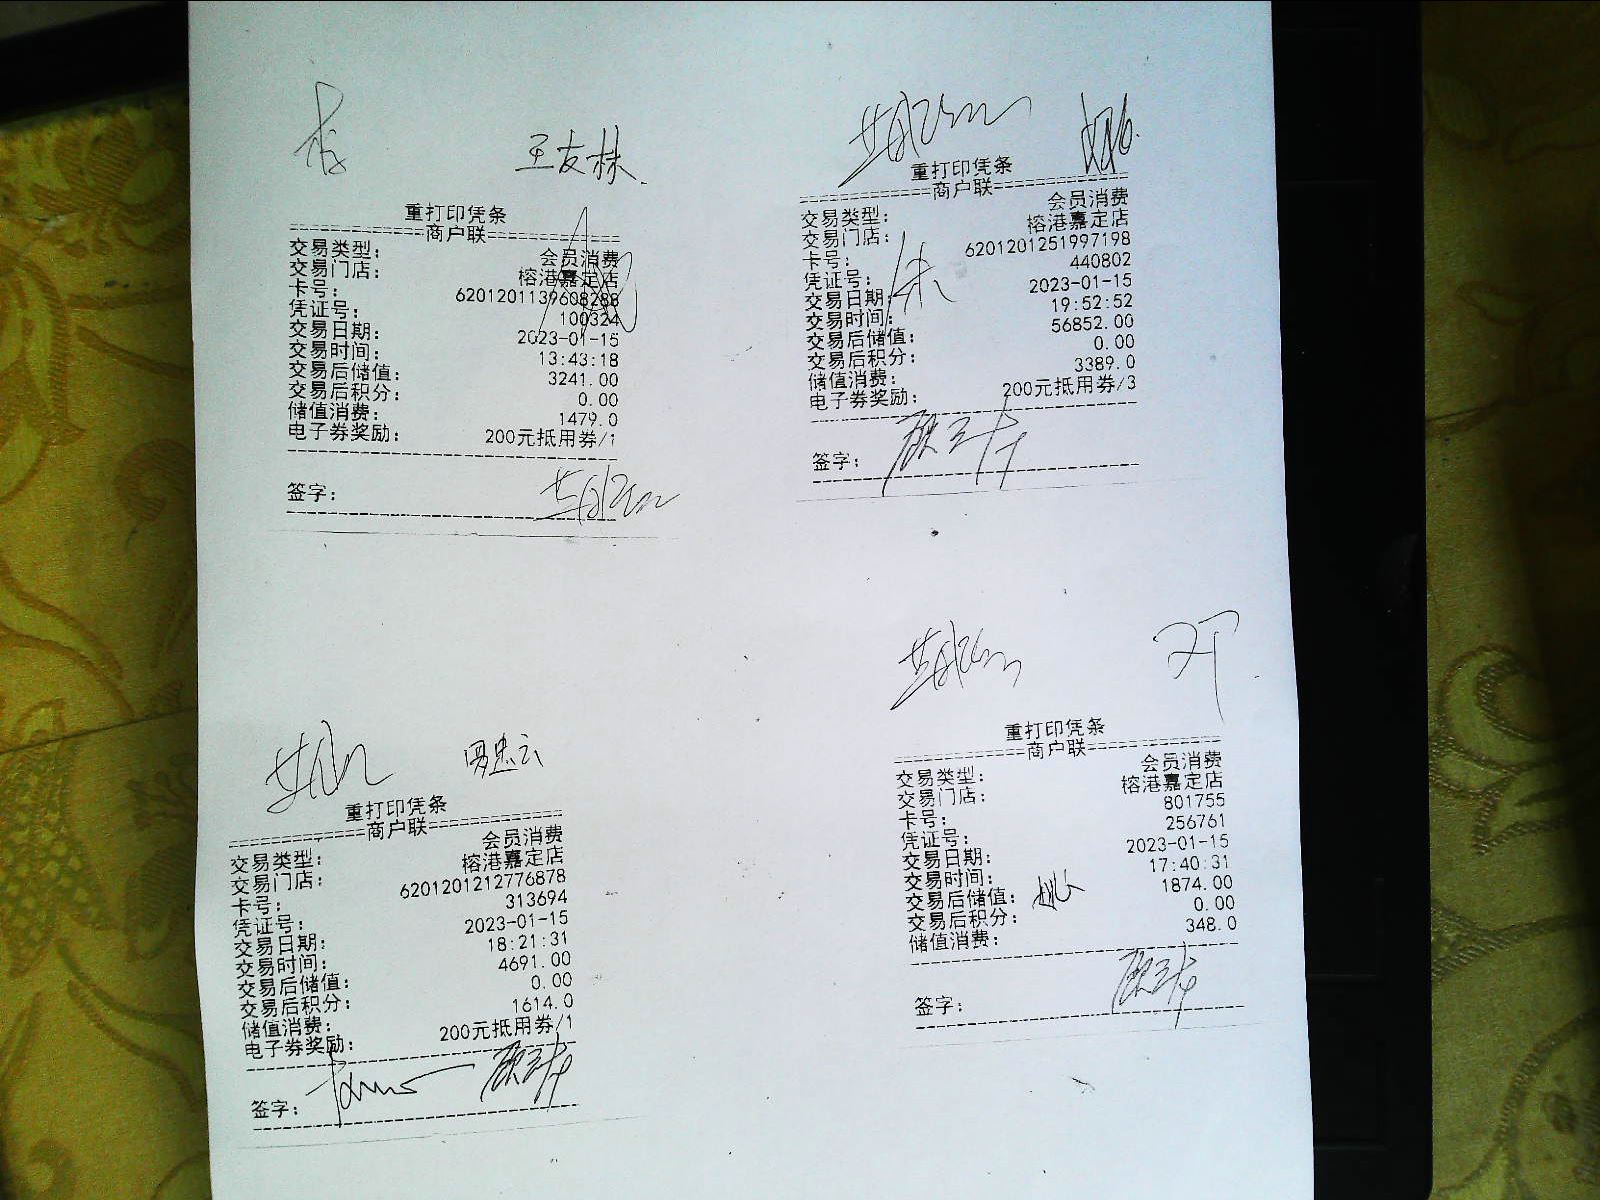 王友林
重打印凭条
商户联
交易类型: 会员消费
交易门店: 榕港嘉定店
卡号: 6201201139608288
凭证号: 100324
交易日期: 2023-01-15
交易时间: 13:43:18
交易后储值: 3241.00
交易后积分: 0.00
储值消费: 1479.0
电子券奖励: 200元抵用券/1
签字:
重打印凭条
商户联
交易类型: 会员消费
交易门店: 榕港嘉定店
卡号: 6201201251997198
凭证号: 440802
交易日期: 2023-01-15
交易时间: 19:52:52
交易后储值: 56852.00
交易后积分: 0.00
储值消费: 3389.0
电子券奖励: 200元抵用券/3
签字:
罗忠云
重打印凭条
商户联
交易类型: 会员消费
交易门店: 榕港嘉定店
卡号: 6201201212776878
凭证号: 313694
交易日期: 2023-01-15
交易时间: 18:21:31
交易后储值: 4691.00
交易后积分: 0.00
储值消费: 1614.0
电子券奖励: 200元抵用券/1
签字:
邓
重打印凭条
商户联
交易类型: 会员消费
交易门店: 榕港嘉定店
卡号: 801755
凭证号: 256761
交易日期: 2023-01-15
交易时间: 17:40:31
交易后储值: 1874.00
交易后积分: 0.00
储值消费: 348.0
签字: